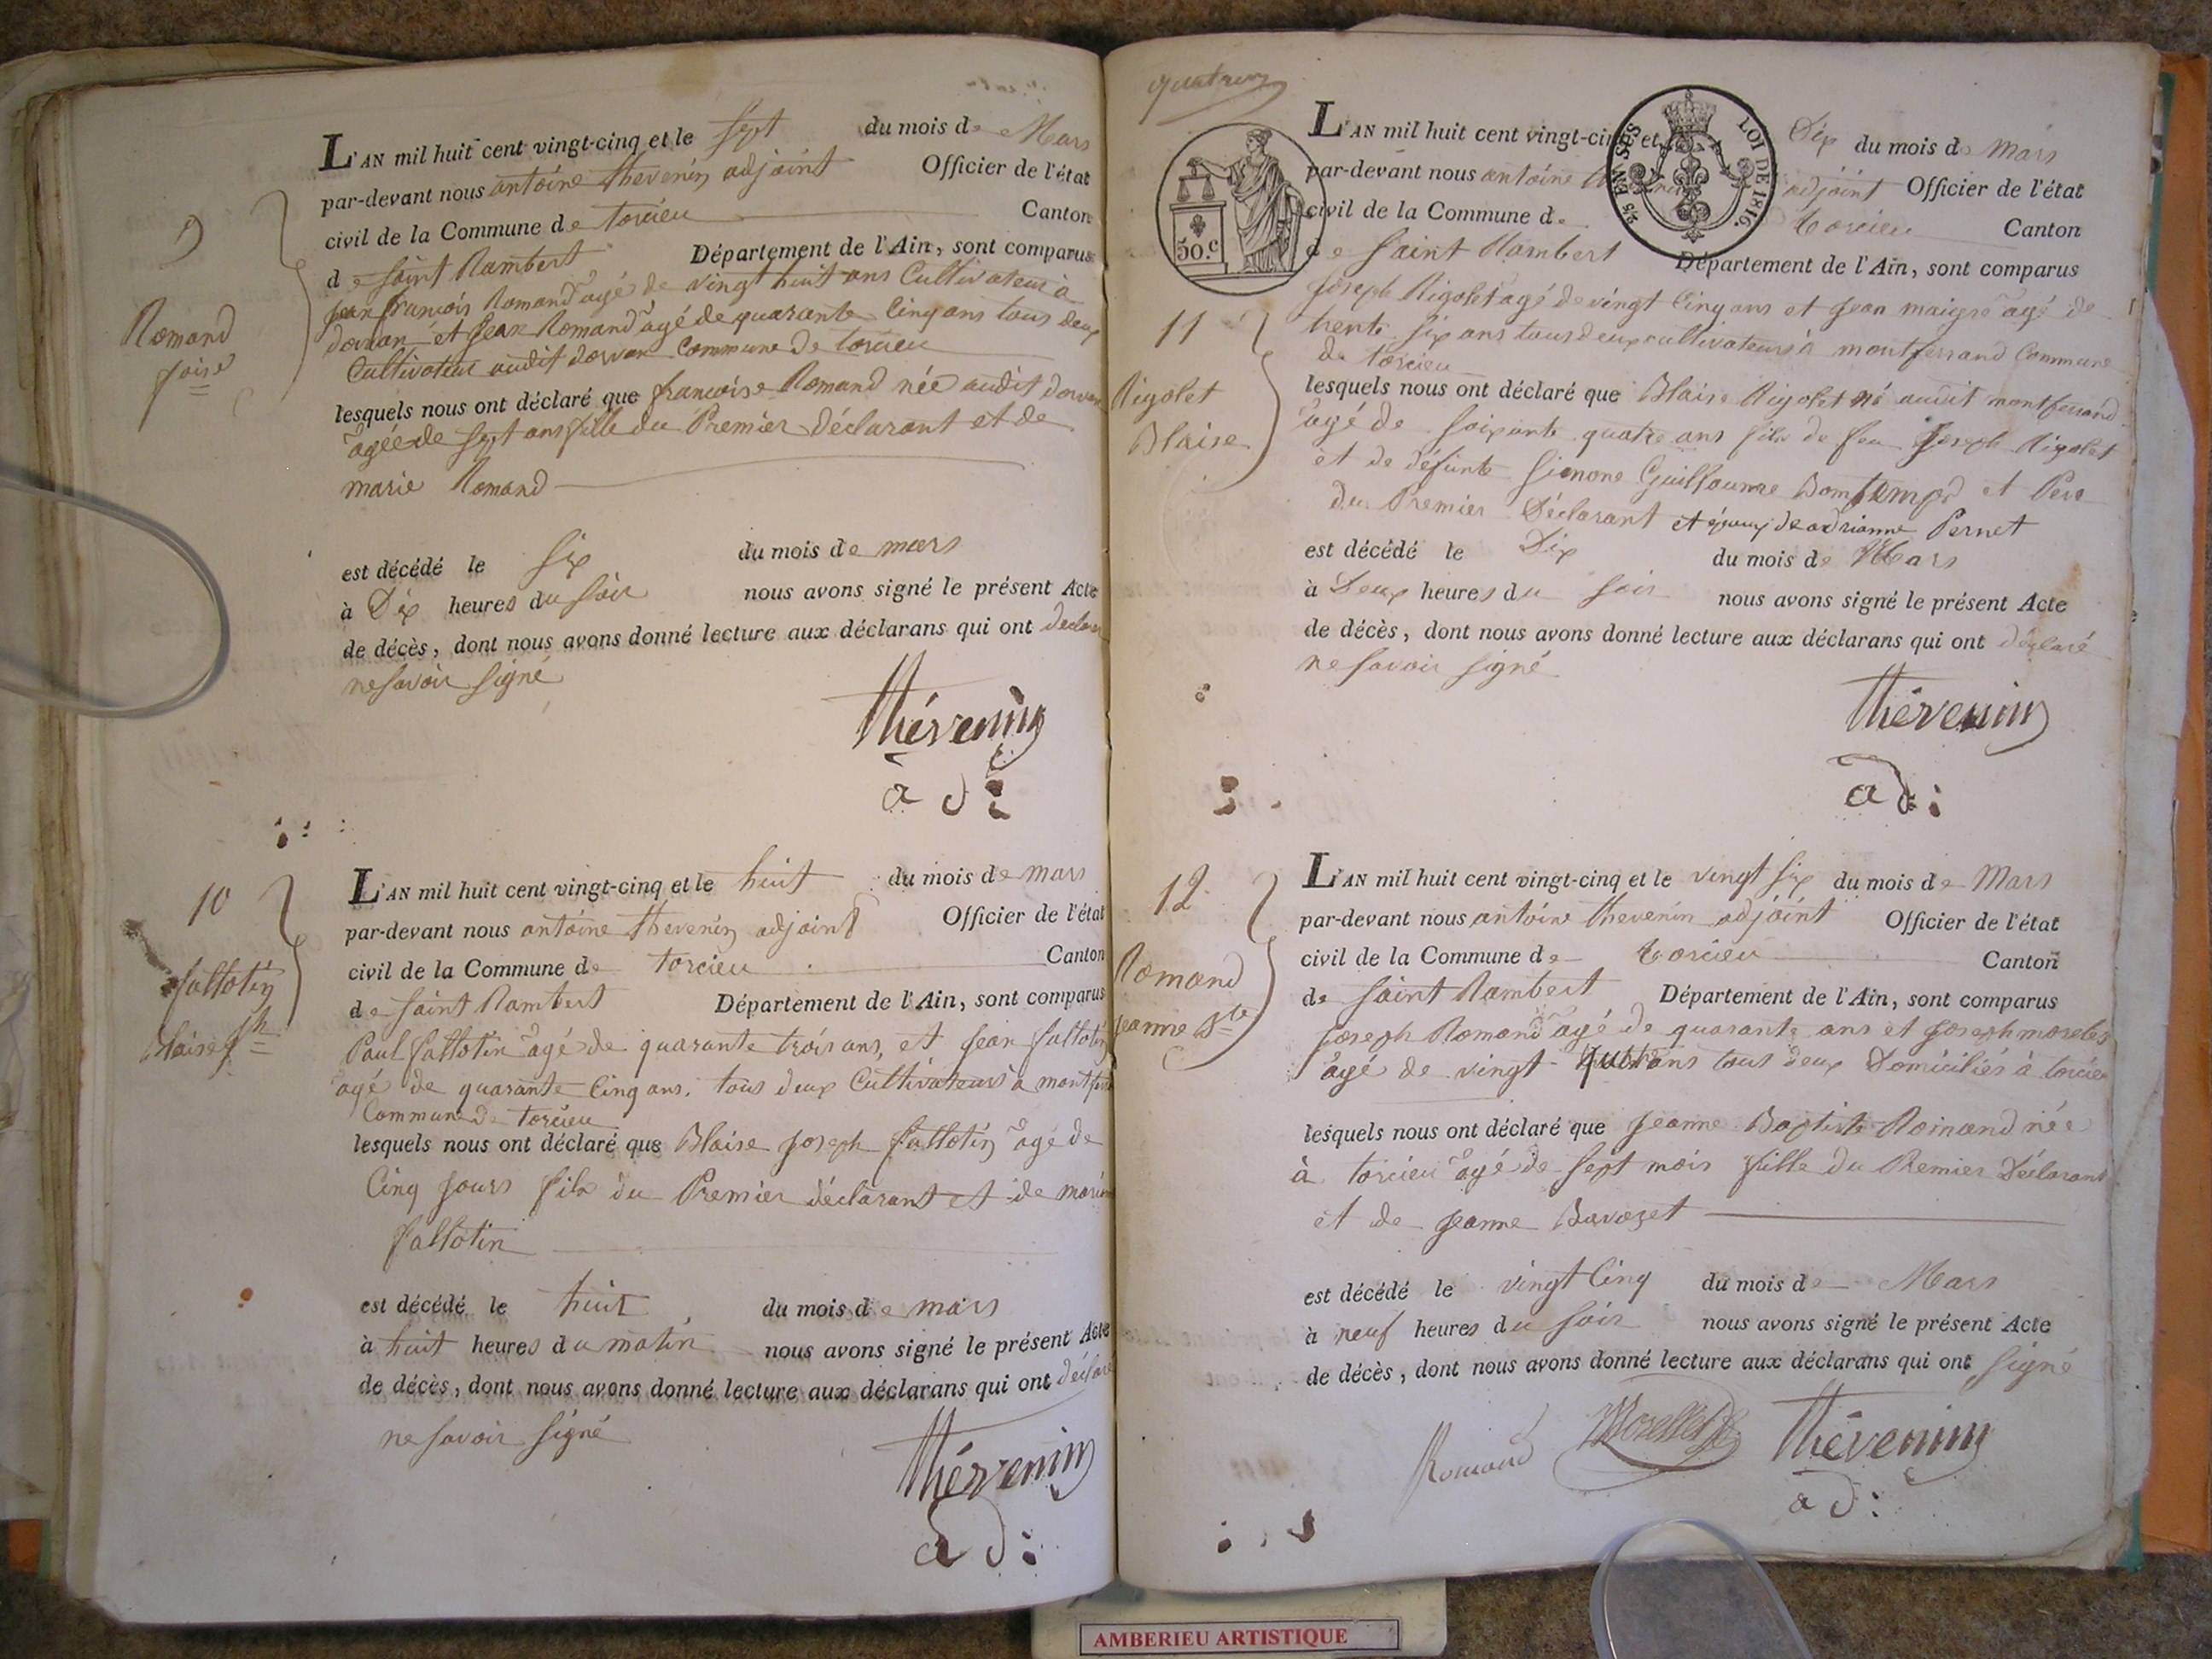 9
Romand
foise
L'AN mil huit cent vingt-cinq et le sept du mois de Mars
par-devant nous antoine thevenin adjoint Officier de l'état
civil de la Commune de torcieu Canton
de saint Rambert Département de l'Ain, sont comparus
jean françois Romand agé de vingt huit ans Cultivateur à
dorvan et jean Romand agé de quarante Cinq ans tous deux
Cultivateur audit dorvan Commune de torcieu
lesquels nous ont déclaré que francoise Romand née audit dorvan
agée de sept ans fille du Premier déclarant et de
marie Romand
est décédé le six du mois de mars
à Dix heures du soir nous avons signé le présent Acte
de décès, dont nous avons donné lecture aux déclarans qui ont
ne savoir signé
Thévenin
adi
10
fallotin
Blaise jph
L'AN mil huit cent vingt-cinq et le huit du mois de mars
par-devant nous antoine thevenin adjoint Officier de l'état
civil de la Commune de torcieu Canton
de saint Rambert Département de l'Ain, sont comparus
Paul fallotin agé de quarante trois ans, et jean fallotin
agé de quarante Cinq ans. tous deux Cultivateurs à
Commune de torcieu
lesquels nous ont déclaré que Blaise joseph fallotin agé de
Cinq jours fils du Premier déclarant et de
fallotin
est décédé le huit du mois de mars
à huit heures du matin nous avons signé le présent Acte
de décès, dont nous avons donné lecture aux déclarans qui ont
ne savoir signé
Thévenin
adi
50.c
2/5 EN SUS
LOI DE 1816.
11
Rigolet
Blaise
L'AN mil huit cent vingt-cinq et Dix du mois de mars
par-devant nous antoine adjoint Officier de l'état
civil de la Commune de torcieu Canton
de saint Rambert Département de l'Ain, sont comparus
joseph Rigolet agé de vingt Cinq ans et jean maigre agé de
trente six ans tous deux cultivateurs à montferrand Commune
de torcieu
lesquels nous ont déclaré que Blaise Rigolet né audit montferrand
agé de soixante quatre ans fils de feu joseph Rigolet
et de défunte Simone Guillaume Bomtemps et Pere
du Premier Déclarant et époux de adrianne Pernet
est décédé le Dix du mois de Mars
à Deux heures du soir nous avons signé le présent Acte
de décès, dont nous avons donné lecture aux déclarans qui ont déclaré
ne savoir signé
Thévenin
adi
12
Romand
jeanne Bte
L'AN mil huit cent vingt-cinq et le vingt six du mois de Mars
par-devant nous antoine thevenin adjoint Officier de l'état
civil de la Commune de torcieu Canton
de saint Rambert Département de l'Ain, sont comparus
joseph Romand agé de quarante ans et joseph
agé de vingt ans tous deux Domiciliés à torcieu
lesquels nous ont déclaré que jeanne Baptiste Romand née
à torcieu agé de sept mois fille du Premier Déclarant
et de jeanne Bavozet
est décédé le vingt Cinq du mois de Mars
à neuf heures du soir nous avons signé le présent Acte
de décès, dont nous avons donné lecture aux déclarans qui ont signé
Romand
Thévenin
adi
AMBERIEU ARTISTIQUE